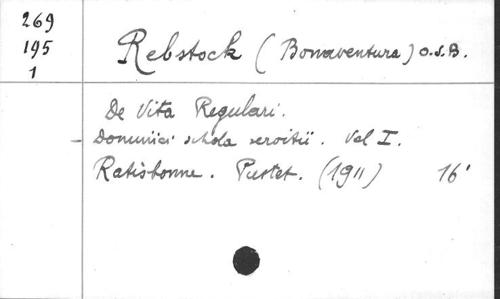 269
195
1
Rebstock (Bonaventura) O.S.B.
De Vita Regulari.
- Dominici schola servitii. Vol I.
Ratisbonne. Pustet. (1911) 16'